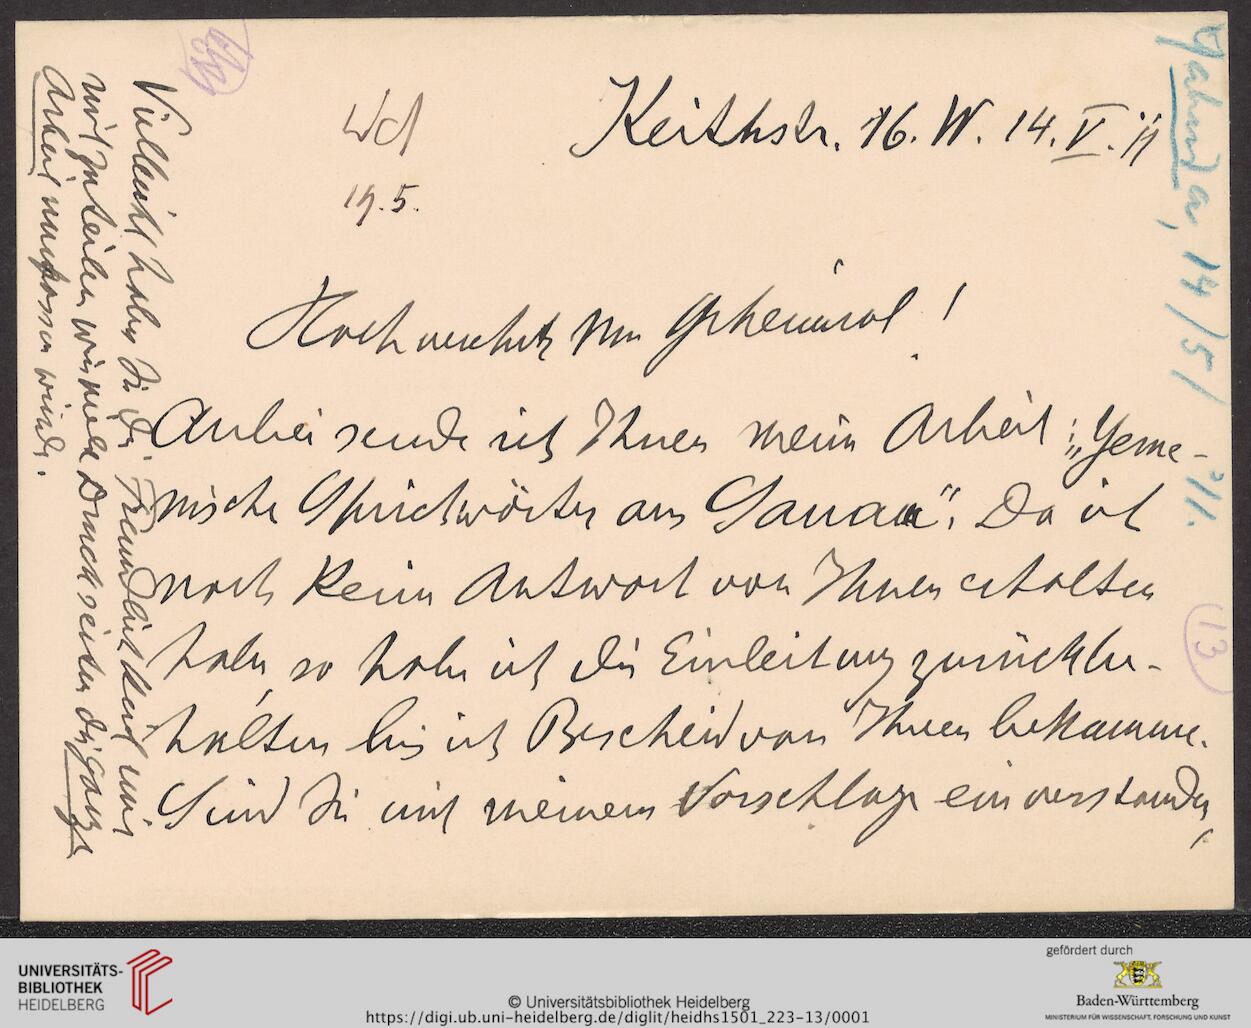 Keithstr. 16. W. 14. V. 11
Wd
19. 5.
Hochverehrter Herr Geheimrat!
Anbei sende ich Ihnen meine Arbeit: „Yeme-
nische Sprichwörter aus Sanaa“. Da ich
noch keine Antwort von Ihnen erhalten
habe, so habe ich die Einleitung zurückbe-
halten bis ich Bescheid von Ihnen bekomme.
Sind Sie mit meinem Vorschlage einverstanden,
Vielleicht haben Sie die Freundlichkeit mir
mitzuteilen wieviele Druckseiten die ganze
Arbeit umfassen würde.
Yahuda, 14/5/11.
13
UNIVERSITÄTS-
BIBLIOTHEK
HEIDELBERG
© Universitätsbibliothek Heidelberg
https://digi.ub.uni-heidelberg.de/diglit/heidhs1501_223-13/0001
gefördert durch
Baden-Württemberg
MINISTERIUM FÜR WISSENSCHAFT, FORSCHUNG UND KUNST